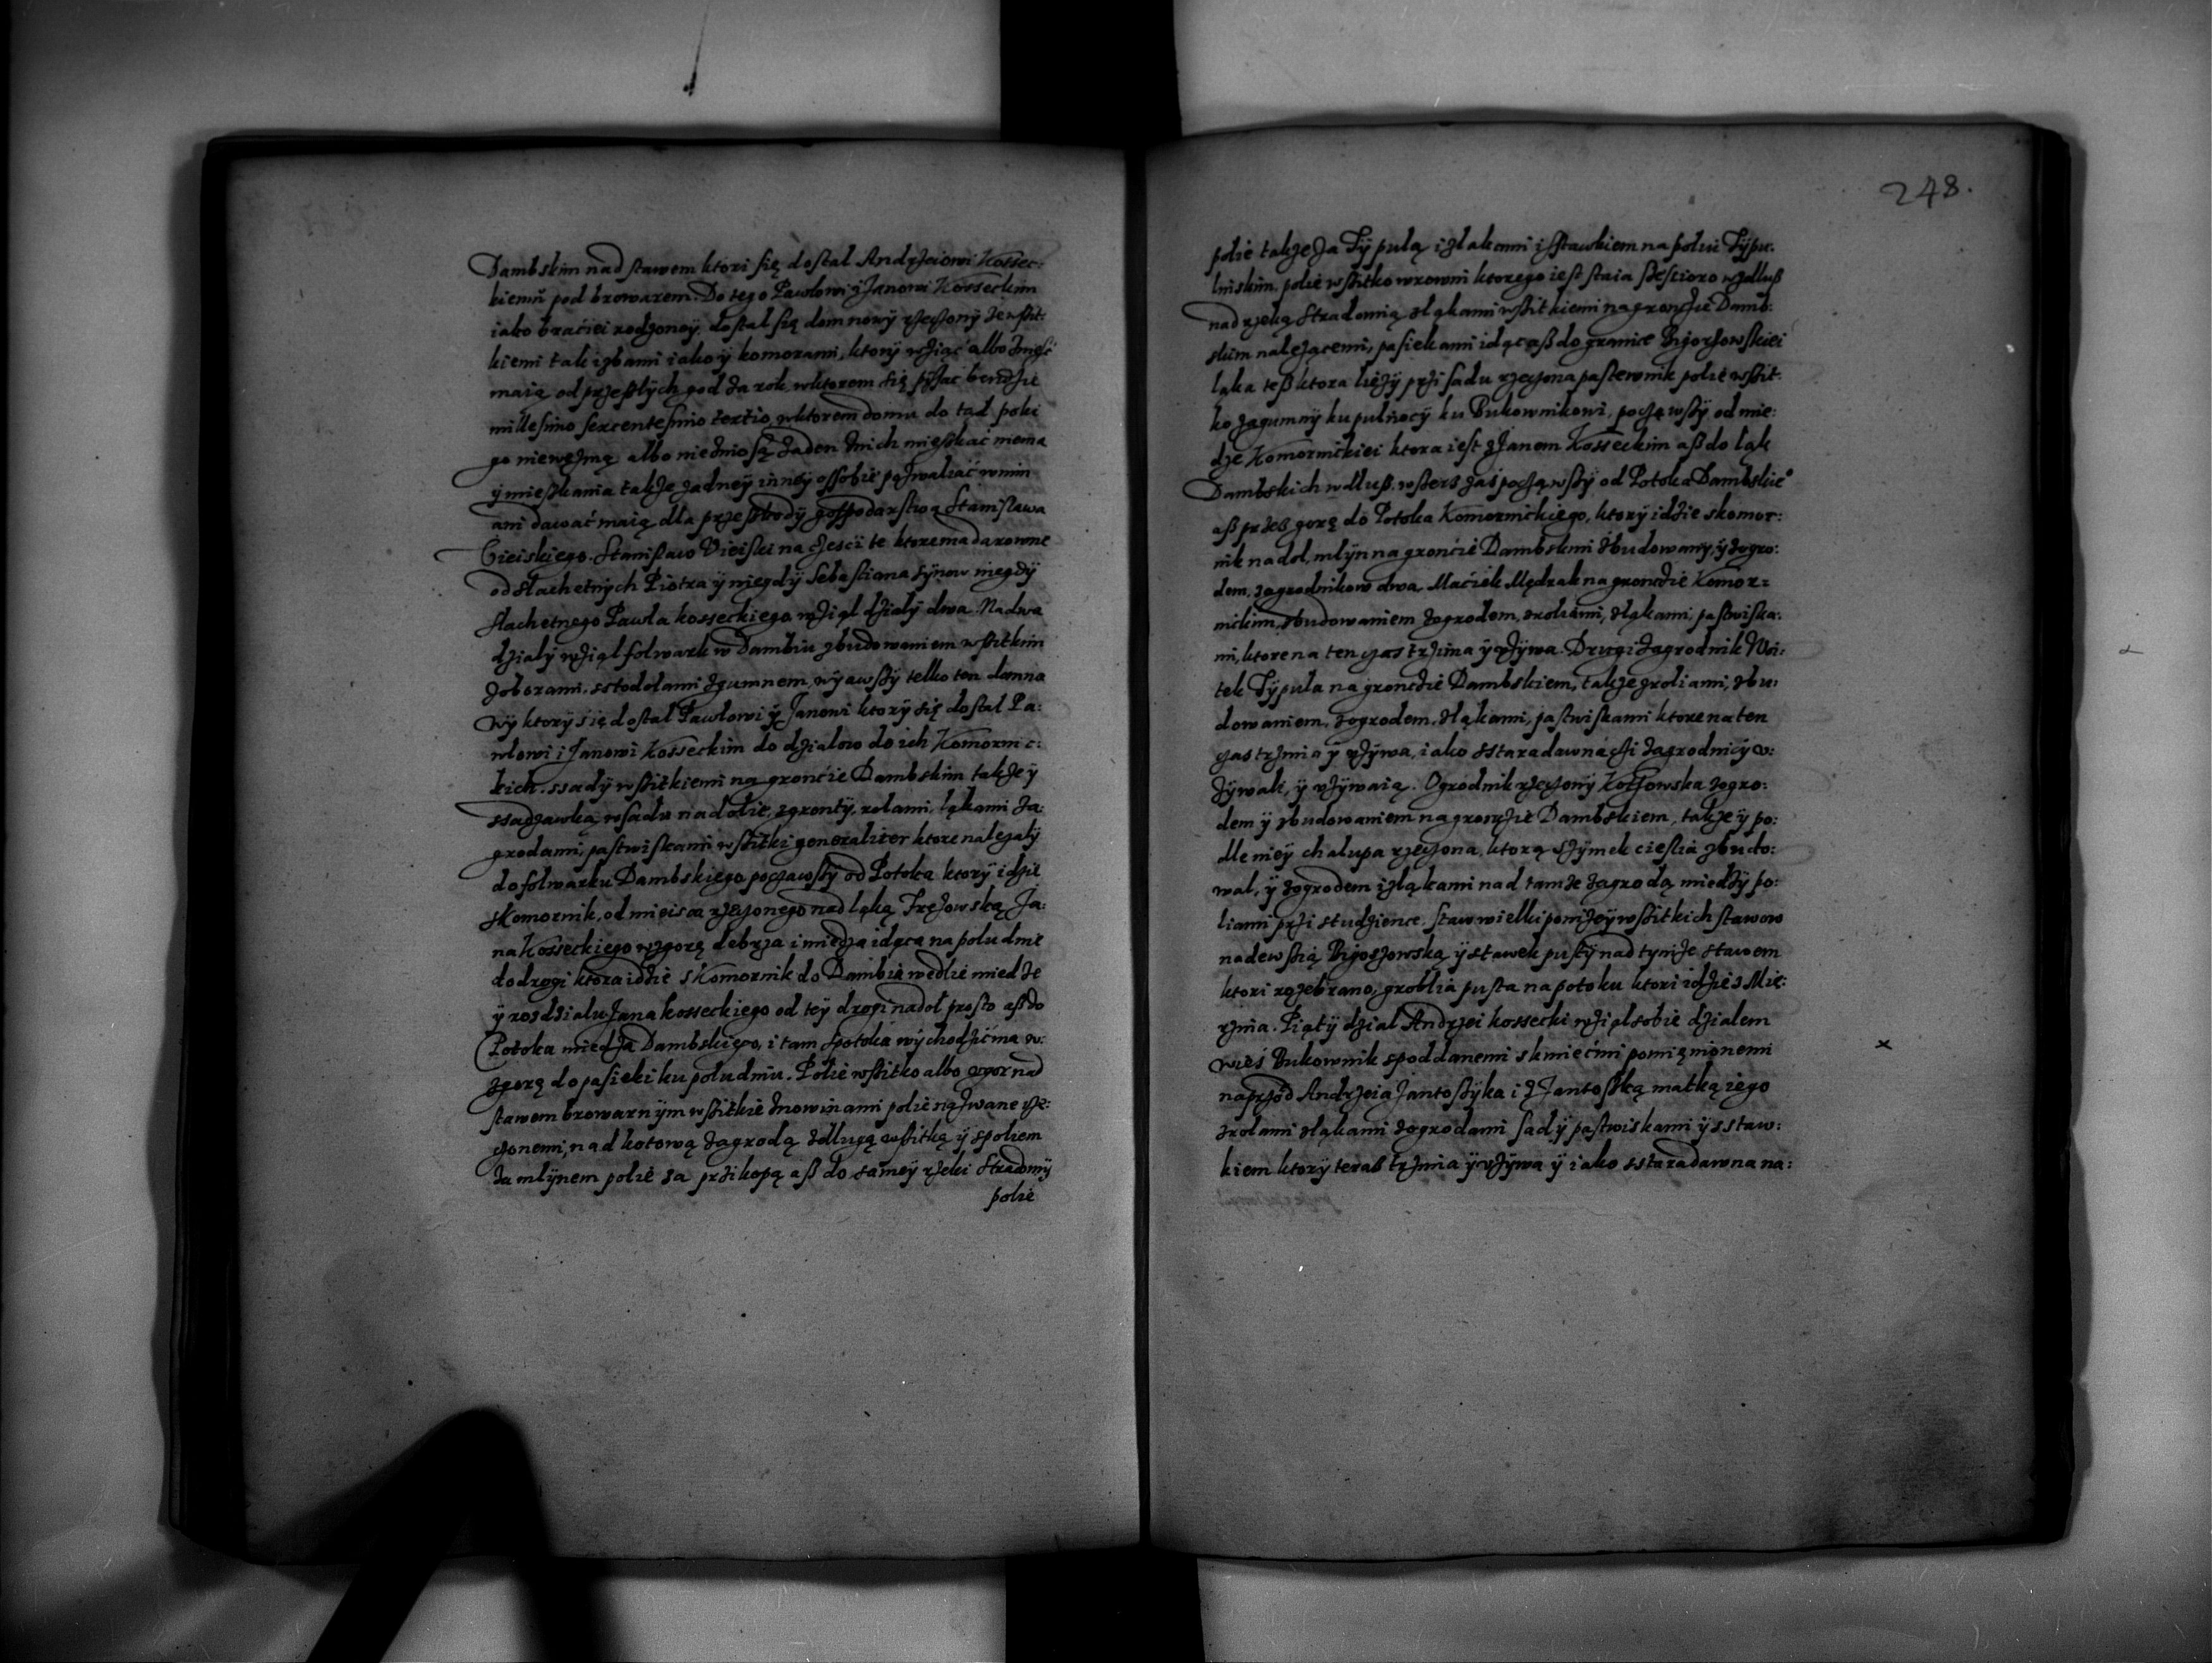 Dambskim nad stawem ktori się dostal Andrzeiowi Kossec:
kiemu pod browarem. Do tego Pawlowi i Janowi Kosseckim
iako braciei rodzoney, dostal się dom nowy rzeczony ze wssit:
kiemi tak izbami iako y komorami, ktory wziąć albo znieść
maią od przeszlych god za rok, wktorem się pissac bendzie
millesimo sexcentesimo tertio, wktorem domu do tąd poki
go niewezmą albo nie zniosą zaden znich mieszkać niema
y mieszkania takze zadney inney ossobie pozwaliać wnim
ani dawać maią dla przeskody gospodarstwa Stanislawa
Cieiskiego. Stanislaw Cieiski na czesci te ktore ma darowne
od slachetnych Piotra y niegdy Sebastiana synow niegdy
slachetnego Pawla kosseckiego wziąl dzialy dwa. Na dwa
dzialy wziąl folwark w Dambiu zbudowaniem wssitkim
zoborami, sstodolami zgumnem, wyawssy telko ten dom no
wy ktory się dostal Pawlowi y Janowi ktory się dostal Pa:
wlowi i Janowi Kosseckim do dzialow do ich Komornic:
kich. ssady wssitkiemi na groncie Dambskim takze y
ssadzawką wsadu nadolie, zgronty, rolami, ląkami za:
grodami, pastwiskami wssitki generaliter ktore nalezaly
do folwarku Dambskiego poczawssy od Potoka ktory idzie
skomornik, od mieisca rzeczonego nad ląką Frezowską Ja:
na Kosseckiego wzgorę debrza i miedza idąca na poludnie
do drogi ktora idzie s Komornik do Dambia wedlie miedze
y rosdzialu Jana kosseckiego od tey drogi nadol prosto asz do
Potoka miedza Dambskiego, i tam spotoka wychodzić ma w:
zgorę do pasieki ku poludniu. Polie wssitko albo ugor nad
stawem browarnym wssitkie znowinami polie nazwane rze:
czonemi, nad kotową zagrodą zdlugą wssitką y spoliem
za mlynem polie za przikopą asz do samey rzeki Stradomy
polie
248.
polie takze za Typulą i zlakami i sstawkiem na poliu Typu:
linskim. polie wssitko wrowni ktorego iest staia szescioro wzdlusz
nad rzeką Stradomią zląkami wssitkiemi na groncie Damb:
skim nalezącemi, pasiekami idąc asz do granice Bigorzowskiei
ląka tesz ktora liezy przi sadu rzeczona pastewnik polie wssit:
ko zagumny ku pulnocy ku Bukownikowi, począwssy od mie:
dze Komornickiei ktora iest z Janem Kosseckim asz do ląk
Dambskich wdlusz, wsserz zas począwssy od Potoka Dambskieo
asz przes gorę do Potoka Komornickiego, ktory idzie skomor:
nik na dol, mlyn na groncie Dambskim zbudowany, y zogro:
dem, zagrodnikow dwa. Maciek Mędrak na groncie Komor=
nickim, zbudowaniem zogrodem, zroliami, zląkami, pastwiska:
mi, ktore na ten czas trzima y uzywa. Drugi zagrodnik Woi:
tek Typula na groncie Dambskiem, takze zroliami, zbu:
dowaniem, zogrodem, zląkami, pastwiskami ktore na ten
czas trzima y uzywa, iako sstaradawna ci zagrodnicy u:
zywali, y uzywaią. Ogrodnik rzeczony Kotlowska zogro:
dem y zbudowaniem na groncie Dambskiem, takze y po:
dle niey chalupa rzeczona, ktorą Szymek ciesla zbudo:
wal, y zogrodem i ząkami nad tamze zagrodą miedzy po:
liami przi studzience. staw wielki ponizey wssitkich stawow
nadewssią Bigoszowską y stawek pusty nad tymze stawem
ktori rozebrano, groblia pusta na potoku ktori idzie z Mie:
rznia. Piąty dzial Andrzei kossecki wziąl sobie dzialem
wies Bukownik spoddanemi skmiećmi pomięnionemi
naprzod Andrzeia Jantossyka i z Jantosską matką iego
zrolami zląkami zogrodami sady pastwiskami y sstaw:
kiem ktory teras trzima y uzywa y iako sstaradawna na: